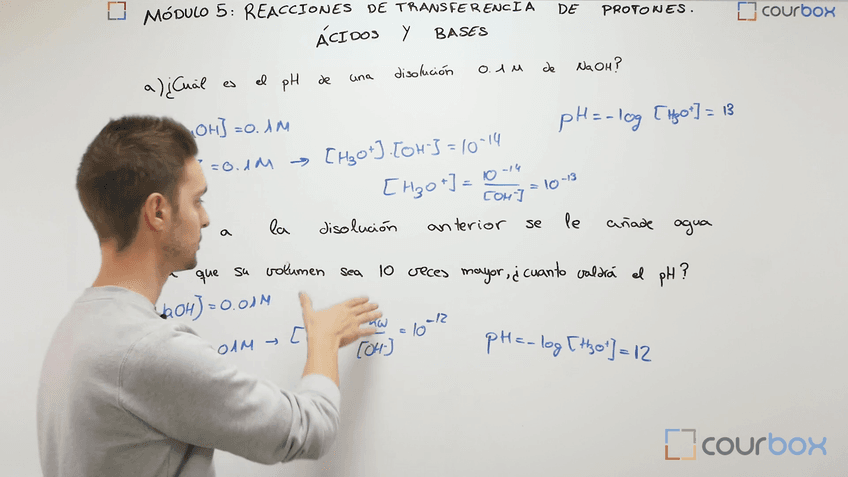 MÓDULO 5: REACCIONES DE TRANSFERENCIA DE PROTONES.
courbox
ÁCIDOS Y BASES
a) ¿Cuál es el pH de una disolución 0.1M de NaOH?
OH] = 0.1M
pH = -log [H3O+] = 13
= 0.1M → [H3O+]·[OH-] = 10-14
[H3O+] = 10-14 / [OH-] = 10-13
a la disolución anterior se le añade agua
que su volumen sea 10 veces mayor, ¿cuanto valdrá el pH?
aOH] = 0.01M
01M → [ / [OH-] = 10-12
pH = -log [H3O+] = 12
courbox